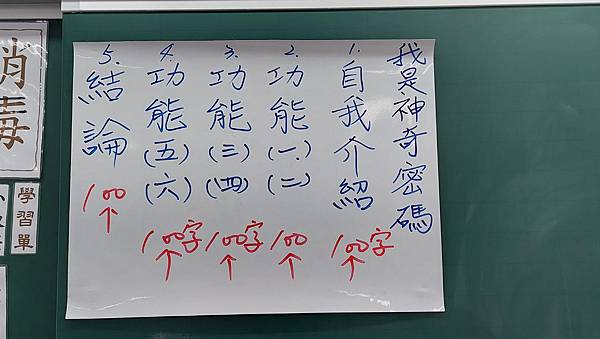 我是神奇密碼
1.自我介紹 100字↑
2.功能(一)(二) 100↑
3.功能(三)(四) 100字↑
4.功能(五)(六) 100字↑
5.結論 100↑
消毒
學習單